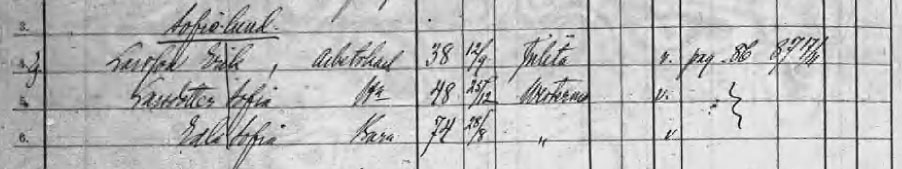 3. Sofielund.
4. Larsson Erik, Arbetskarl 38 12/9 Julita v. pag. 86 87 17/11
5. Larsdotter Sofia Hu 48 25/12 v.
6. Edla Sofia Barn 74 28/8 " v